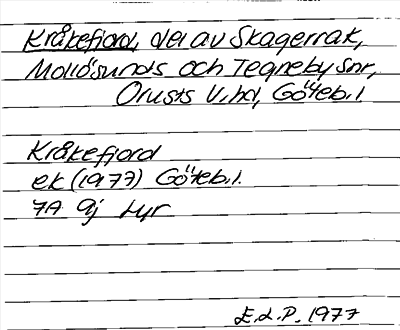 Kråkefjord, del av Skagerrak,
Mollösunds och Tegneby snr,
Orusts V. hd, Göteb. l.
Kråkefjord
ek (1977) Göteb. l.
7A 9j Lyr
E.L.P. 1977